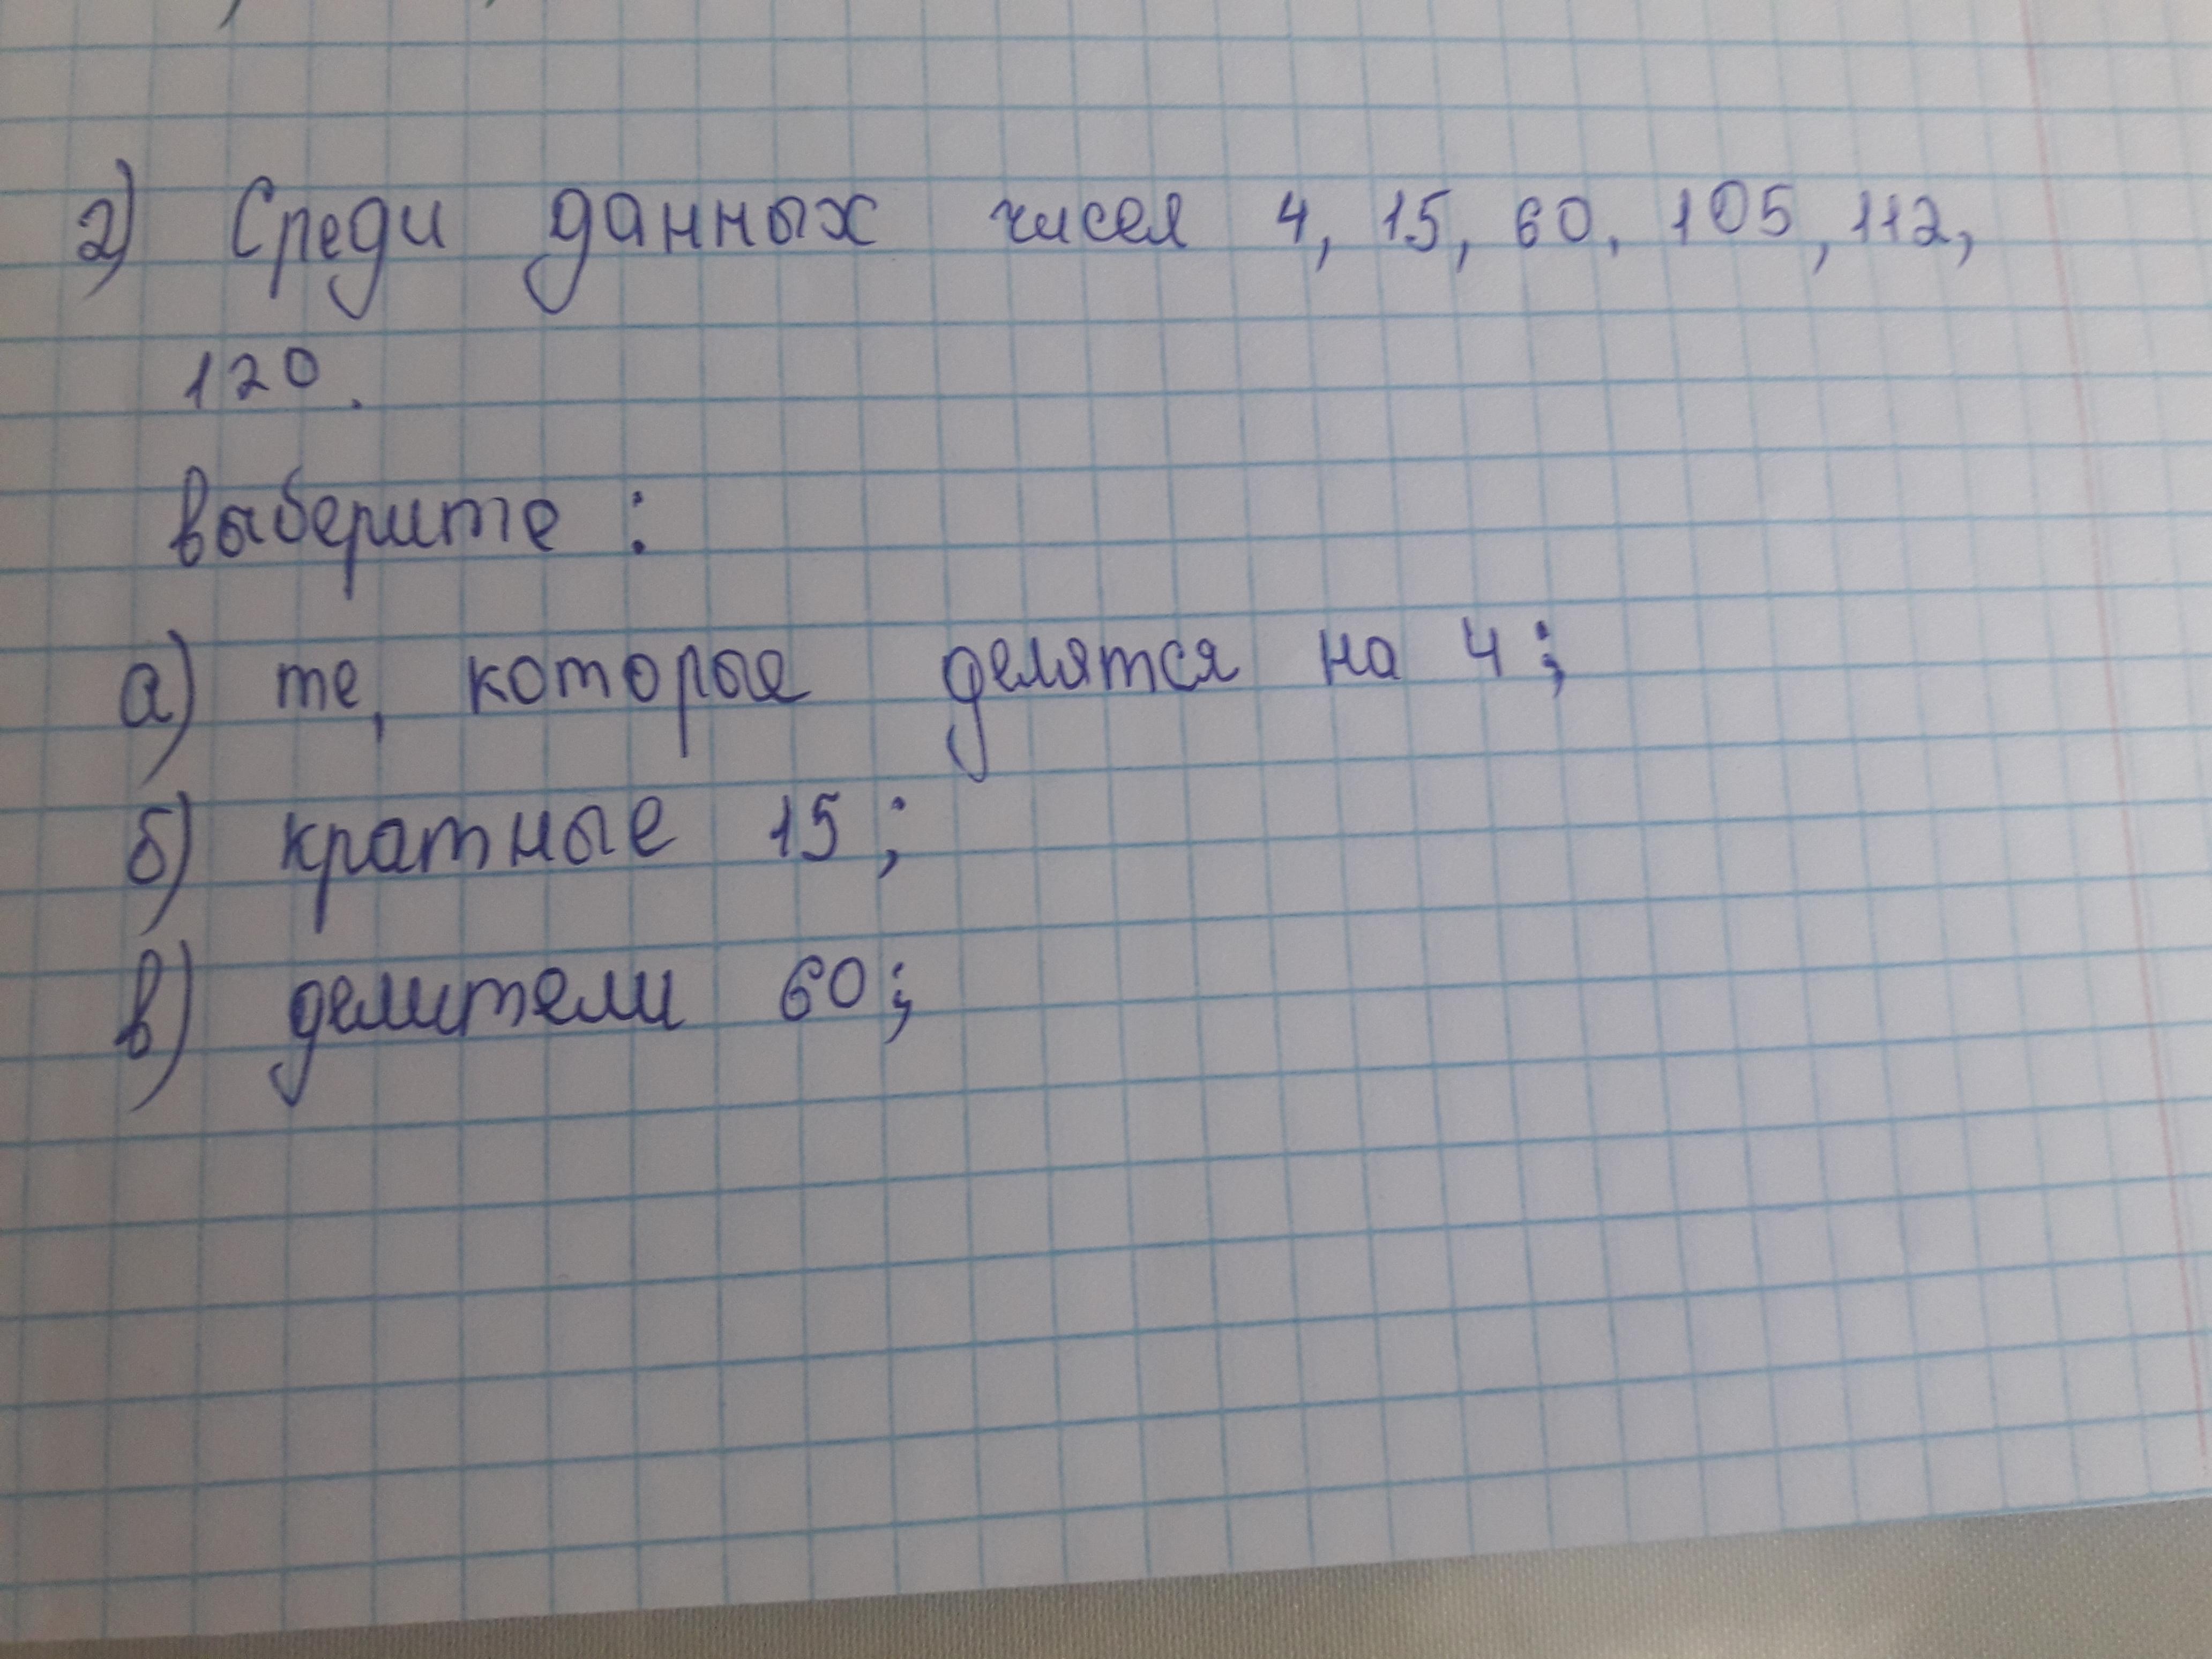 2) Среди данных чисел 4, 15, 60, 105, 112,
120.
выберите :
а) те, которые делятся на 4;
б) кратные 15;
в) делители 60;